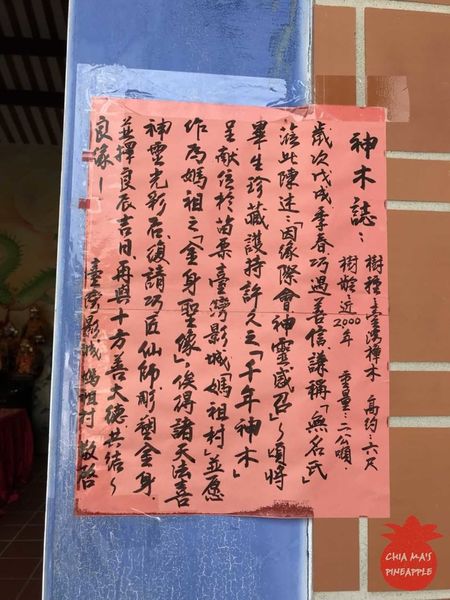 神木誌：
樹種：臺灣樟木 高約：六尺
樹齡：近2000年 重量：二公噸
歲次戊戌季春巧遇善信謙稱「無名氏」
蒞此陳述：因緣際會神靈感召～頃將
畢生珍藏護持許久之「千年神木」
呈献位於苗栗臺灣影城「媽祖村」並愿
作為媽祖之「金身聖像」，俟得諸天法喜
神靈光彩后，復請巧匠仙師彫塑金身
並擇良辰吉日，再與十方善大德共結～
良緣！
臺灣影城 媽祖村 敬啓
CHIA MA'S
PINEAPPLE